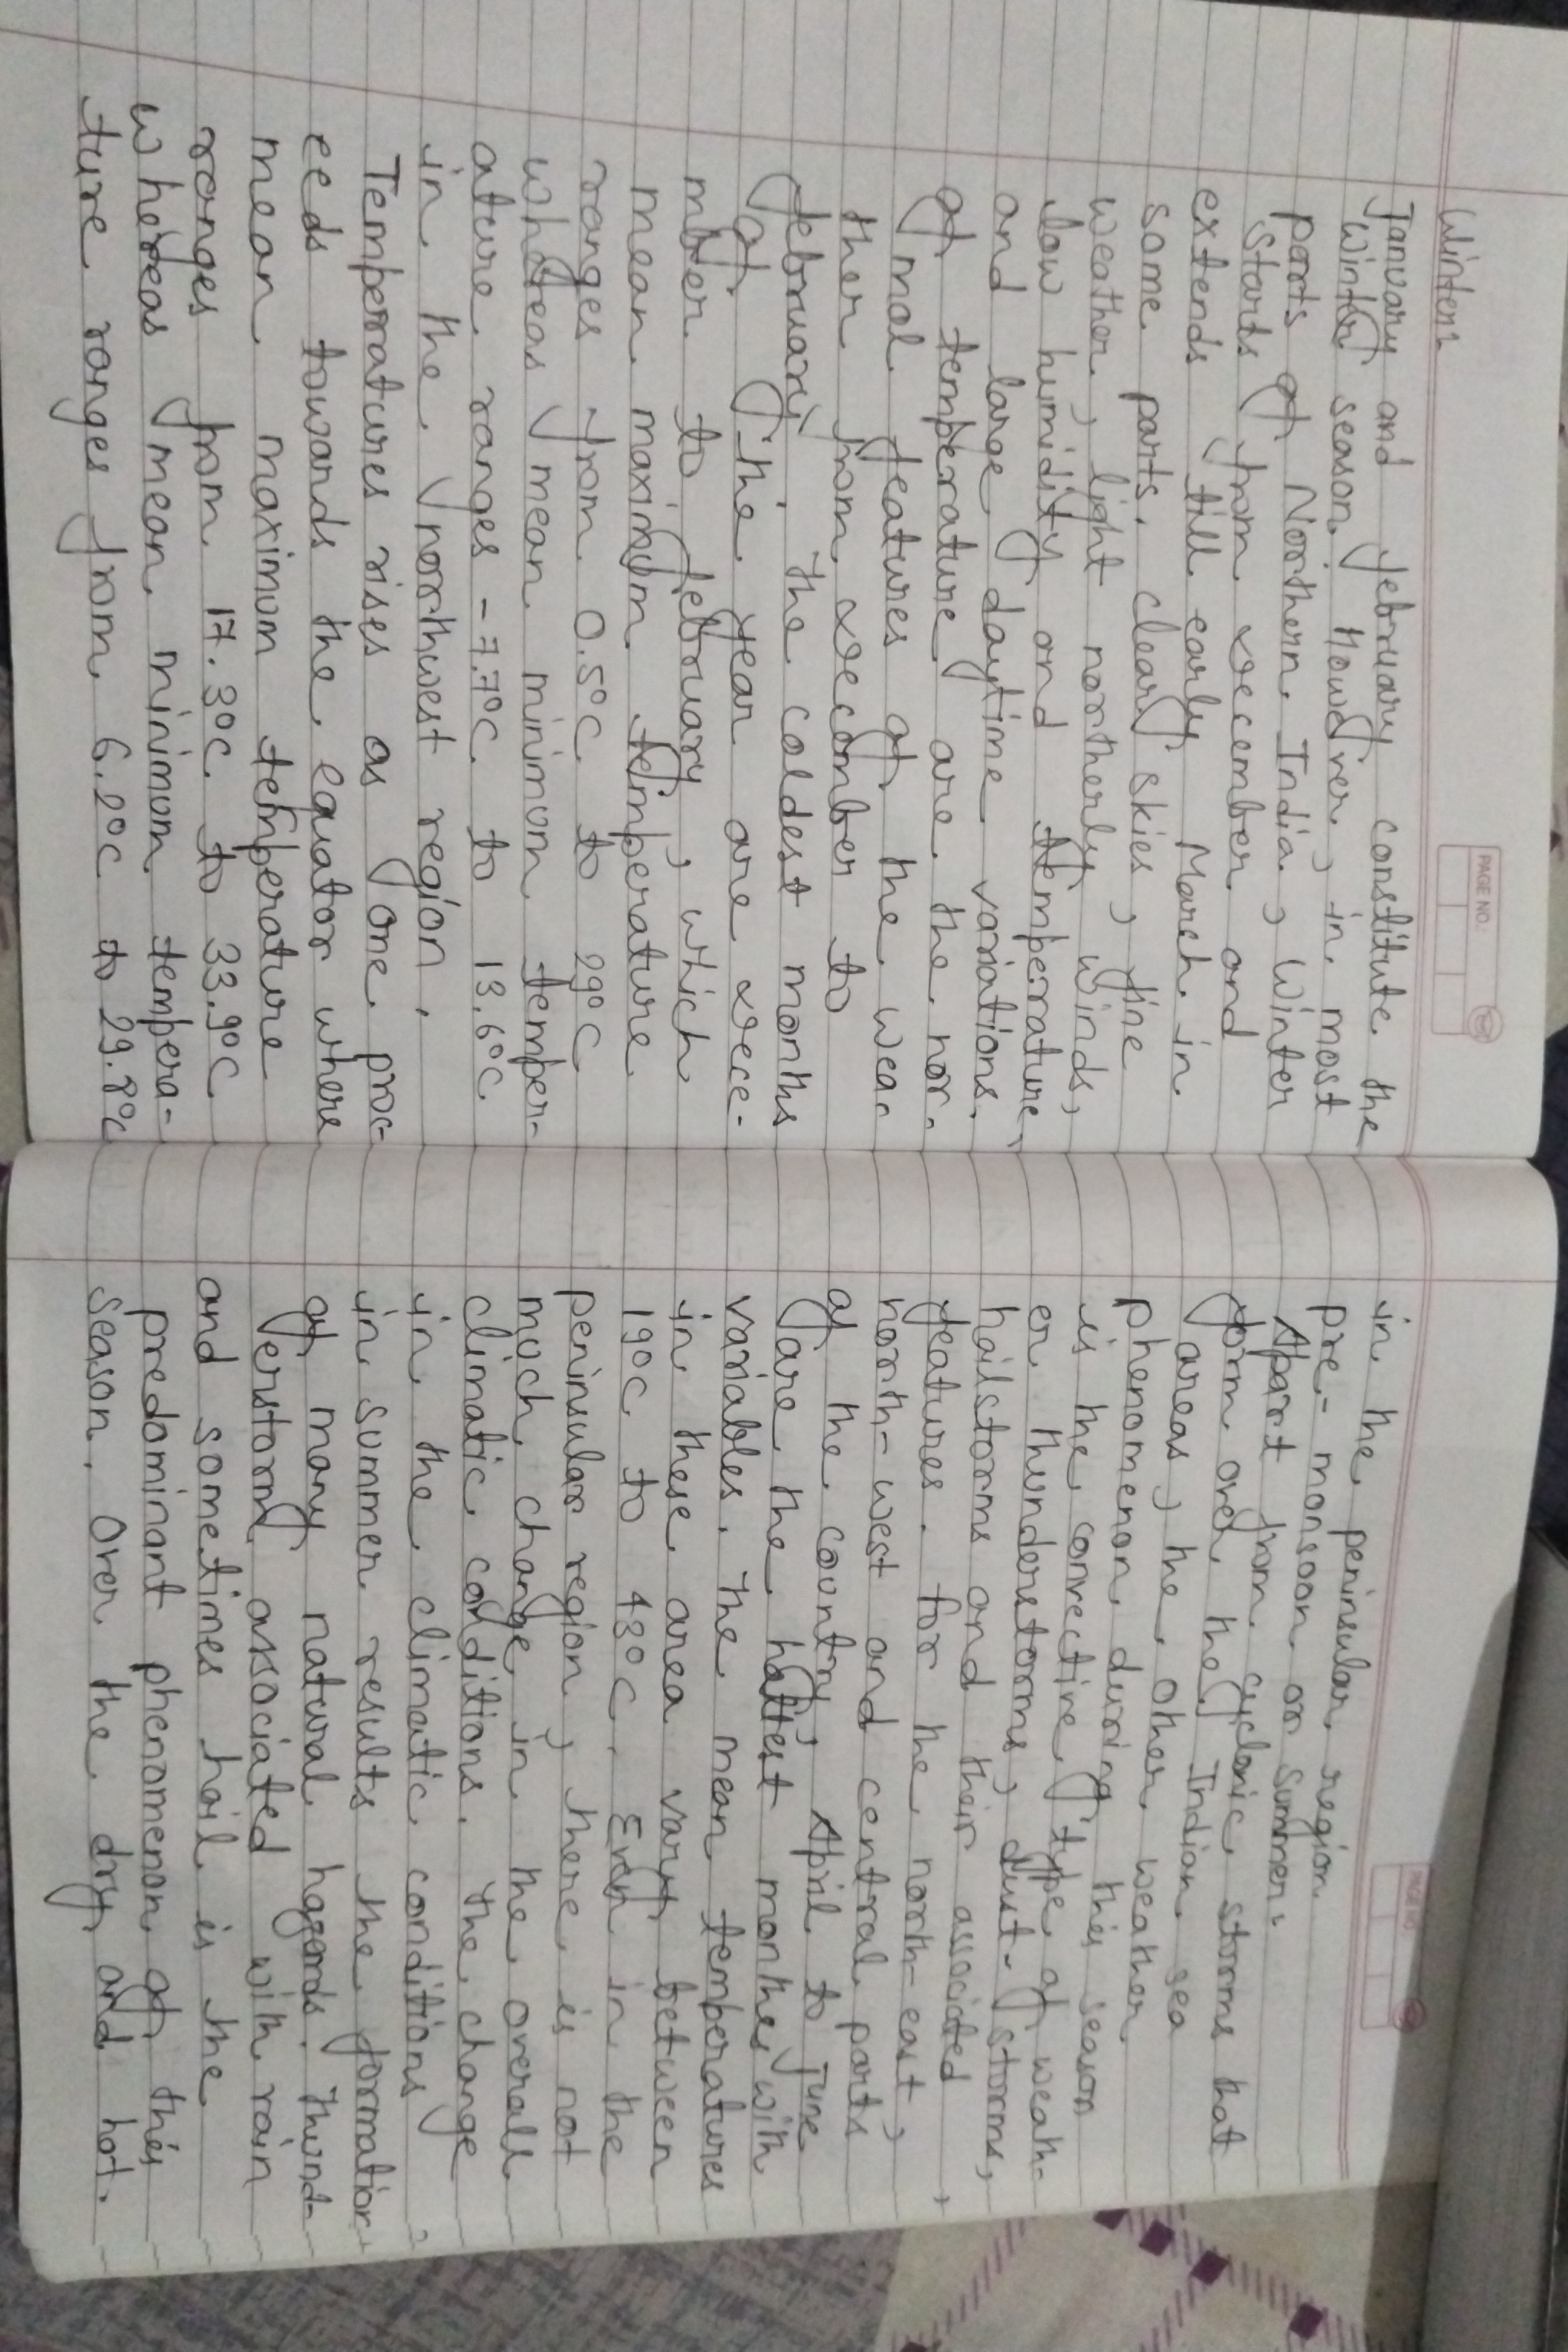 PAGE NO.:
Winter:-
January and february constitute the
winter season. However, in most
parts of Northern India, winter
starts from december and
extends till early March in
some parts. clear skies, fine
weather, light northerly winds,
low humidity and temperature,
and large daytime variations.
of temperature are the nor-
mal features of the wea-
ther from december to
february. The coldest months
of the year are dece-
mber to february, which
mean maximum temperature
ranges from 0.5°C to 29°C
whereas mean minimum temper-
ature ranges -7.7°C to 13.6°C
in the northwest region.
Temperatures rises as one proc-
eeds towards the equator where
mean maximum temperature
ranges from 17.3°C to 33.9°C
whereas mean minimum tempera-
ture ranges from 6.2°C to 29.8°C
PAGE NO
in the peninsular region.
pre-monsoon or summer:
Apart from cyclonic storms that
form over the Indian sea
areas, the other weather
phenomenon during this season
is the convective type of weath-
er thunderstorms, dust-storms,
hailstorms and their associted
features. for the north-east,
north-west and central parts
of the country, April to June
are the hottest months with
variables. The mean temperatures
in these area vary between
19°C to 43°C. Even in the
peninsular region, there is not
much change in the overall
climatic conditions. The change
in the climatic conditions
in summer results the formation
of many natural hazards. Thund-
erstorm associated with rain
and sometimes hail is the
predominant phenomenon of this
season. Over the dry and hot.